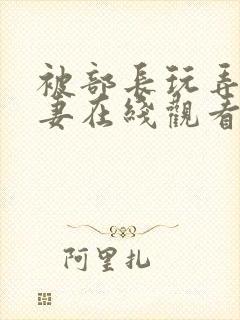 被部長玩弄
妻在綫觀看
阿里扎